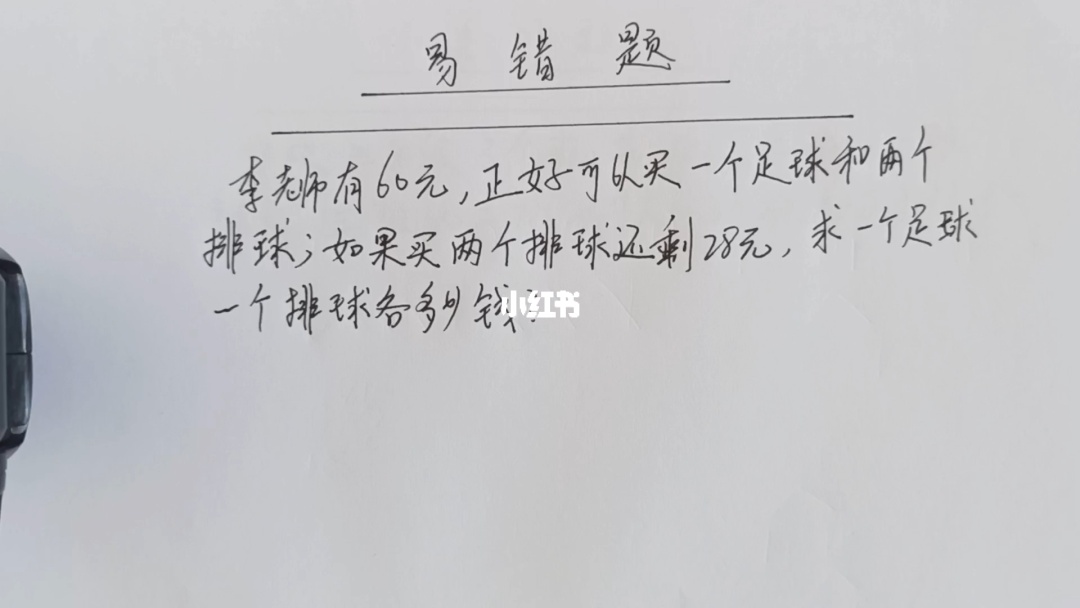 易错题
李老师有60元,正好可以买一个足球和两个
排球;如果买两个排球还剩28元,求一个足球
一个排球各多少钱?
小红书